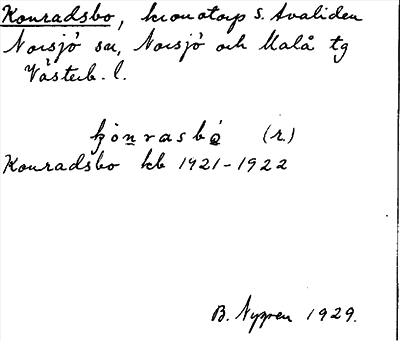 Konradsbo, kronotorp S. Avaliden
Norsjö sn, Norsjö och Malå tg
Västerb. l.
kȯnrasbo̲ (r.)
Konradsbo kb 1921-1922
B. Nygren 1929.